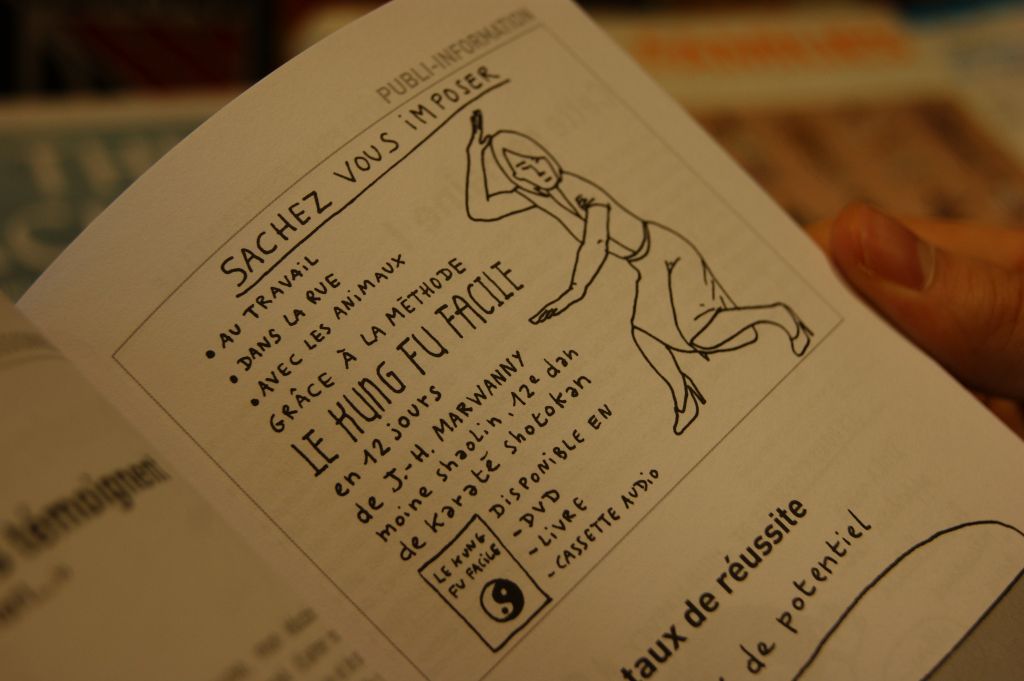 PUBLI-INFORMATION
SACHEZ VOUS IMPOSER
• AU TRAVAIL
• DANS LA RUE
• AVEC LES ANIMAUX
GRÂCE À LA MÉTHODE
LE KUNG FU FACILE
en 12 jours
de J.-H. MARWANNY
moine shaolin, 12e dan
de karaté shotokan
DISPONIBLE EN
- DVD
- LIVRE
- CASSETTE AUDIO
LE KUNG
FU FACILE
taux de réussite
de potentiel
témoignent